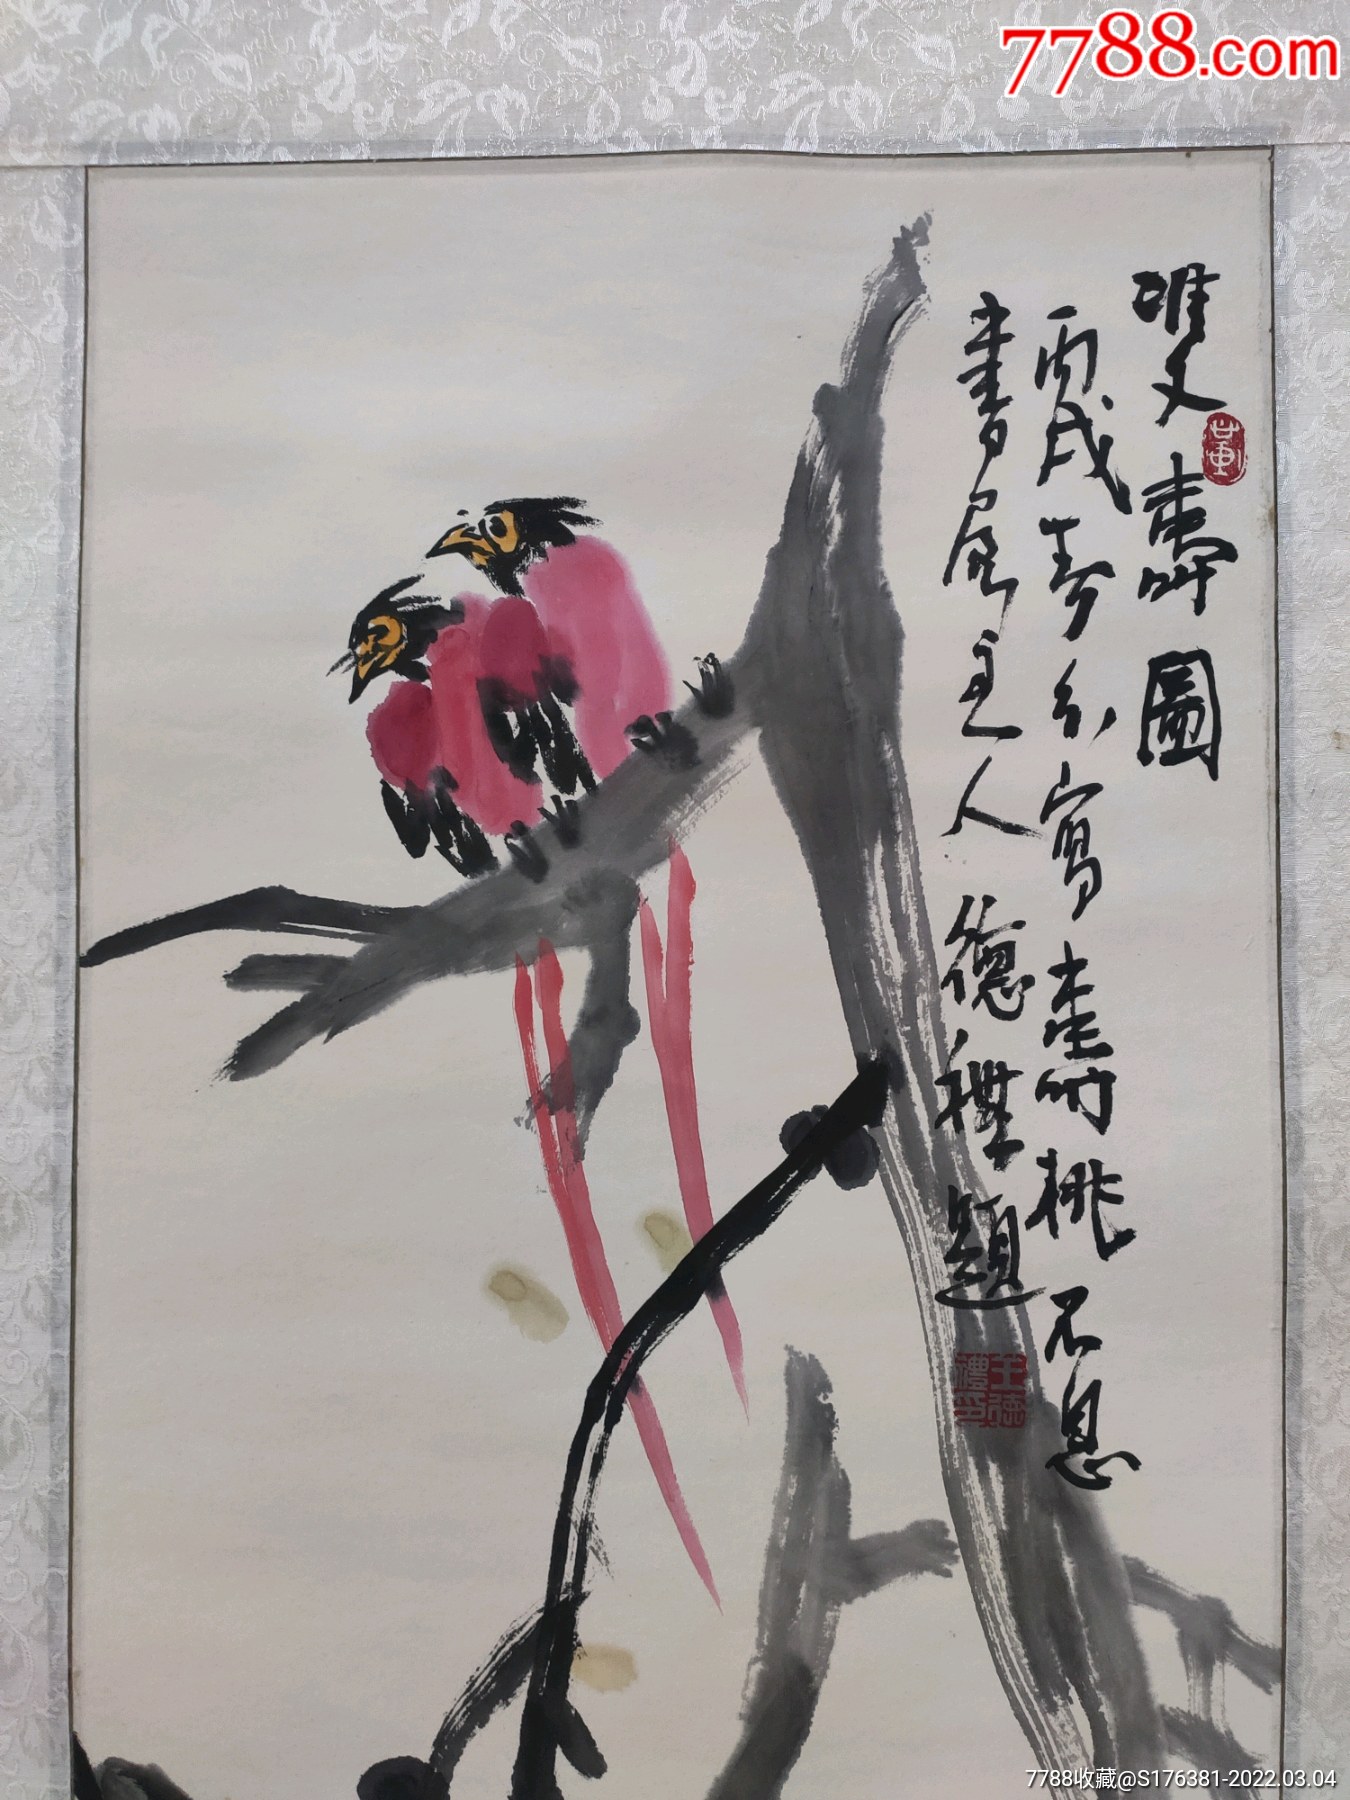 7788.com
雙壽圖
丙戌春分寫壽桃不息
書屋主人德禮題
王德禮印
7788收藏@S176381-2022.03.04